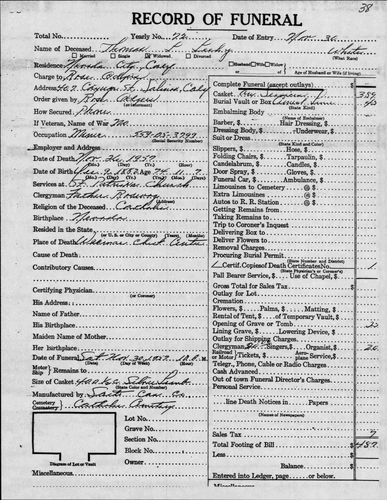 38
RECORD OF FUNERAL
Total No. Yearly No. 72 Date of Entry Nov. 30
Name of Deceased Thomas White
(What Race)
Married Single Widowed Divorced Husband/Wife Widow
Residence Nevada City, Calif Age of Husband or Wife (if living)
Charge to Rose
Address 402 St., Salinas, Calif
Order given by Rose
How Secured Phone
If Veteran, Name of War No
Occupation Miner 559-05-3799
(Social Security Number)
Employer and Address
Date of Death Nov. 26, 1957
(Mo.) (Day) (Yr.) (Hour)
Date of Birth 9, 1882 Age 74 11
(Mo.) (Day) (Yr.) (Yrs.) (Mo.) (Days)
Services at St. Church
Clergyman Father
Religion of the Deceased Catholic
Birthplace Nevada
Resided in the State
(or U. S. or City or County) (Yrs., Months or Days)
Place of Death
Cause of Death
Contributory Causes
Certifying Physician
(or Coroner)
His Address
Name of Father
His Birthplace
Maiden Name of Mother
Her birthplace
Date of Funeral Sat Nov 30, 10 A. M.
(Date) (Day of Week) (Hour)
Motor Ship Remains to
Size of Casket Silver
(State Color and Number)
Manufactured by Cas. Co.
Cemetery Crematory Catholic Cemetery
Lot No.
Grave No.
Section No.
Block No.
Owner
Diagram of Lot or Vault
Miscellaneous
Complete Funeral (except outlays) $
Casket
Burial Vault or Box
(State Kind)
Embalming Body
Barber, $ Hair Dressing, $
Dressing Body, $ Underwear, $
Suit or Dress
(State Kind and Color)
Slippers, $ Hose, $
Folding Chairs, $ Tarpaulin, $
Candelabrum, $ Candles, $
Door Spray, $ Gloves, $
Funeral Car, $ Ambulance, $
Limousines to Cemetery @ $
Extra Limousines @ $
Autos to R. R. Station @ $
Getting Remains from
Taking Remains to
Trip to Coroner's Inquest
Delivering Box to
Deliver Flowers to
Removal Charges
Procuring Burial Permit
(State Number and District)
1 Certif. Copies of Death Certificates No. 1
(State Physician's or Coroner's)
Pall Bearer Service, $ Use of Chapel, $
Gross Total for Sales Tax $
Outlay for Lot
Cremation
Flowers, $ Palms, $ Matting, $
Rental of Tent, $ of Temporary Vault, $
Opening of Grave or Tomb
Lining Grave, $ Lowering Device, $
Outlay for Shipping Charges
Clergyman Singers, $ Organist, $ 20
Railroad or Motor Tickets, $ Aeroplane Service, $
Telegr., Phone, Cable or Radio Charges
Cash Advanced
Out of town Funeral Director's Charges
Personal Service
line Death Notices in Papers
Sales Tax 7
Total Footing of Bill $ 487
Less
Balance $
Entered into Ledger, page or below.
Miscellaneous